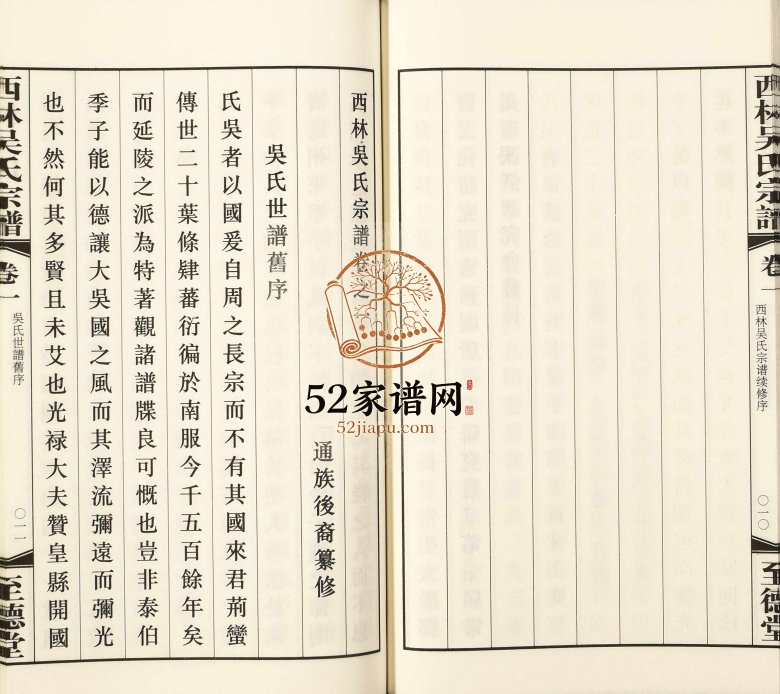 西林吴氏宗譜
卷一
西林吴氏宗谱续修序
〇一〇
至德堂
西林吳氏宗譜卷之
通族後裔纂修
吳氏世譜舊序
氏吳者以國爰自周之長宗而不有其國來君荊蠻
傳世二十葉條肄蕃衍徧於南服今千五百餘年矣
而延陵之派為特著觀諸譜牒良可慨也豈非泰伯
季子能以德讓大吳國之風而其澤流彌遠而彌光
也不然何其多賢且未艾也光禄大夫贊皇縣開國
西林吴氏宗譜
卷一
吳氏世譜舊序
〇一一
至德堂
52家谱网
52jiapu.com